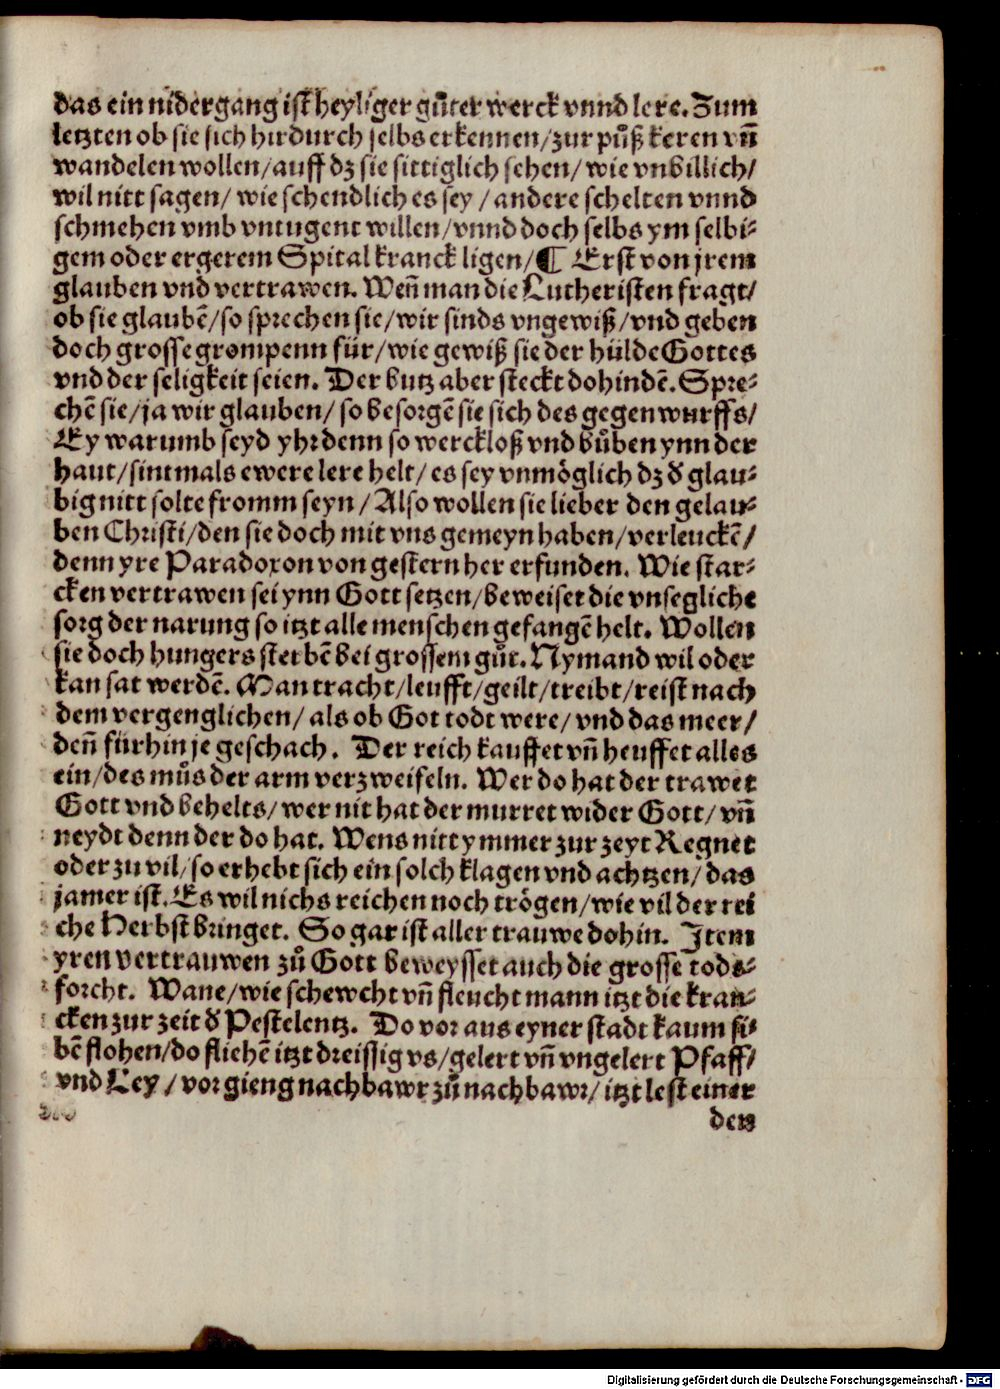 das ein nidergang ist heyliger gůter werck vnnd lere. Zum
letzten ob sie sich hirdurch selbs erkennen/ zur půß keren vñ
wandelen wollen/ auff dz sie sittiglich sehen/ wie vnbillich/
wil nitt sagen/ wie schendlich es sey / andere schelten vnnd
schmehen vmb vntugent willen/ vnnd doch selbs ym selbi⸗
gem oder ergerem Spital kranck ligen/ ¶ Erst von jrem
glauben vnd vertrawen. Weñ man die Lutheristen fragt/
ob sie glaubẽ/ so sprechen sie/ wir sinds vngewiß/ vnd geben
doch grosse grompenn für/ wie gewiß sie der hülde Gottes
vnd der seligkeit seien. Der butz aber steckt dohindẽ. Spre⸗
chẽ sie/ ja wir glauben/ so besorgẽ sie sich des gegenwurffs/
Ey warumb seyd yhr denn so werckloß vnd bůben ynn der
haut/ sintmals ewere lere helt/ es sey vnmöglich dz đ glau⸗
big nitt solte fromm seyn / Also wollen sie lieber den gelau⸗
ben Christi/ den sie doch mit vns gemeyn haben/ verleuckẽ/
denn yre Paradoxon von gestern her erfunden. Wie star⸗
cken vertrawen sei ynn Gott setzen/ beweiset die vnsegliche
sorg der narung so itzt alle menschen gefangẽ helt. Wollen
sie doch hungers sterbẽ bei grossem gůt. Nymand wil oder
kan sat werdẽ. Man tracht/ leufft/ geilt/ treibt/ reist nach
dem vergenglichen/ als ob Got todt were/ vnd das meer/
deñ fürhin je geschach. Der reich kauffet vñ heuffet alles
ein/ des můs der arm verzweifeln. Wer do hat der trawet
Gott vnd behelts/ wer nit hat der murret wider Gott/ vñ
neydt denn der do hat. Wens nitt ymmer zur zeyt Regnet
oder zu vil/ so erhebt sich ein solch klagen vnd achtzen/ das
jamer ist. Es wil nichs reichen noch trögen/ wie vil der rei
che Herbst bringet. So gar ist aller trauwe dohin. Item
yren vertrauwen zů Gott beweysset auch die grosse tods⸗
forcht. Wane/ wie schewcht vñ fleucht mann itzt die kran⸗
cken zur zeit đ Pestelentz. Do vor aus eyner stadt kaum si⸗
bẽ flohen/ do fliehẽ itzt dreissig vs/ gelert vñ vngelert Pfaff/
vnd Ley / vor gieng nachbawr zů nachbawr/ itzt lest einer
den
Digitalisierung gefördert durch die Deutsche Forschungsgemeinschaft - DFG